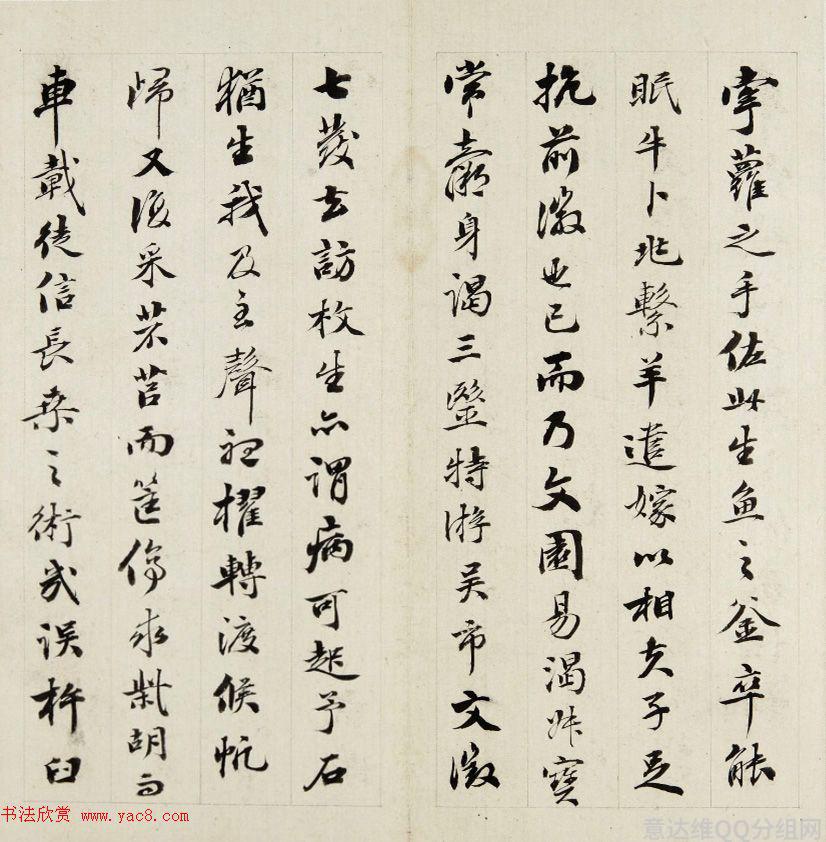 牽蘿之手佐此生魚之釜卒能
眠牛卜兆繫羊遣嫁以相夫子足
抗前徽也已而乃文園易渴妹寶
常齋身謁三醫特游吴市文徵
七發去訪枚生亦謂病可起予石
猶生我及至聲裡櫂轉渡候帆
歸又復采芣苢而筐傷求
胡
車載徒信長桑之術我誤杵臼
书法欣赏 www.yac8.com
意达维QQ分组网